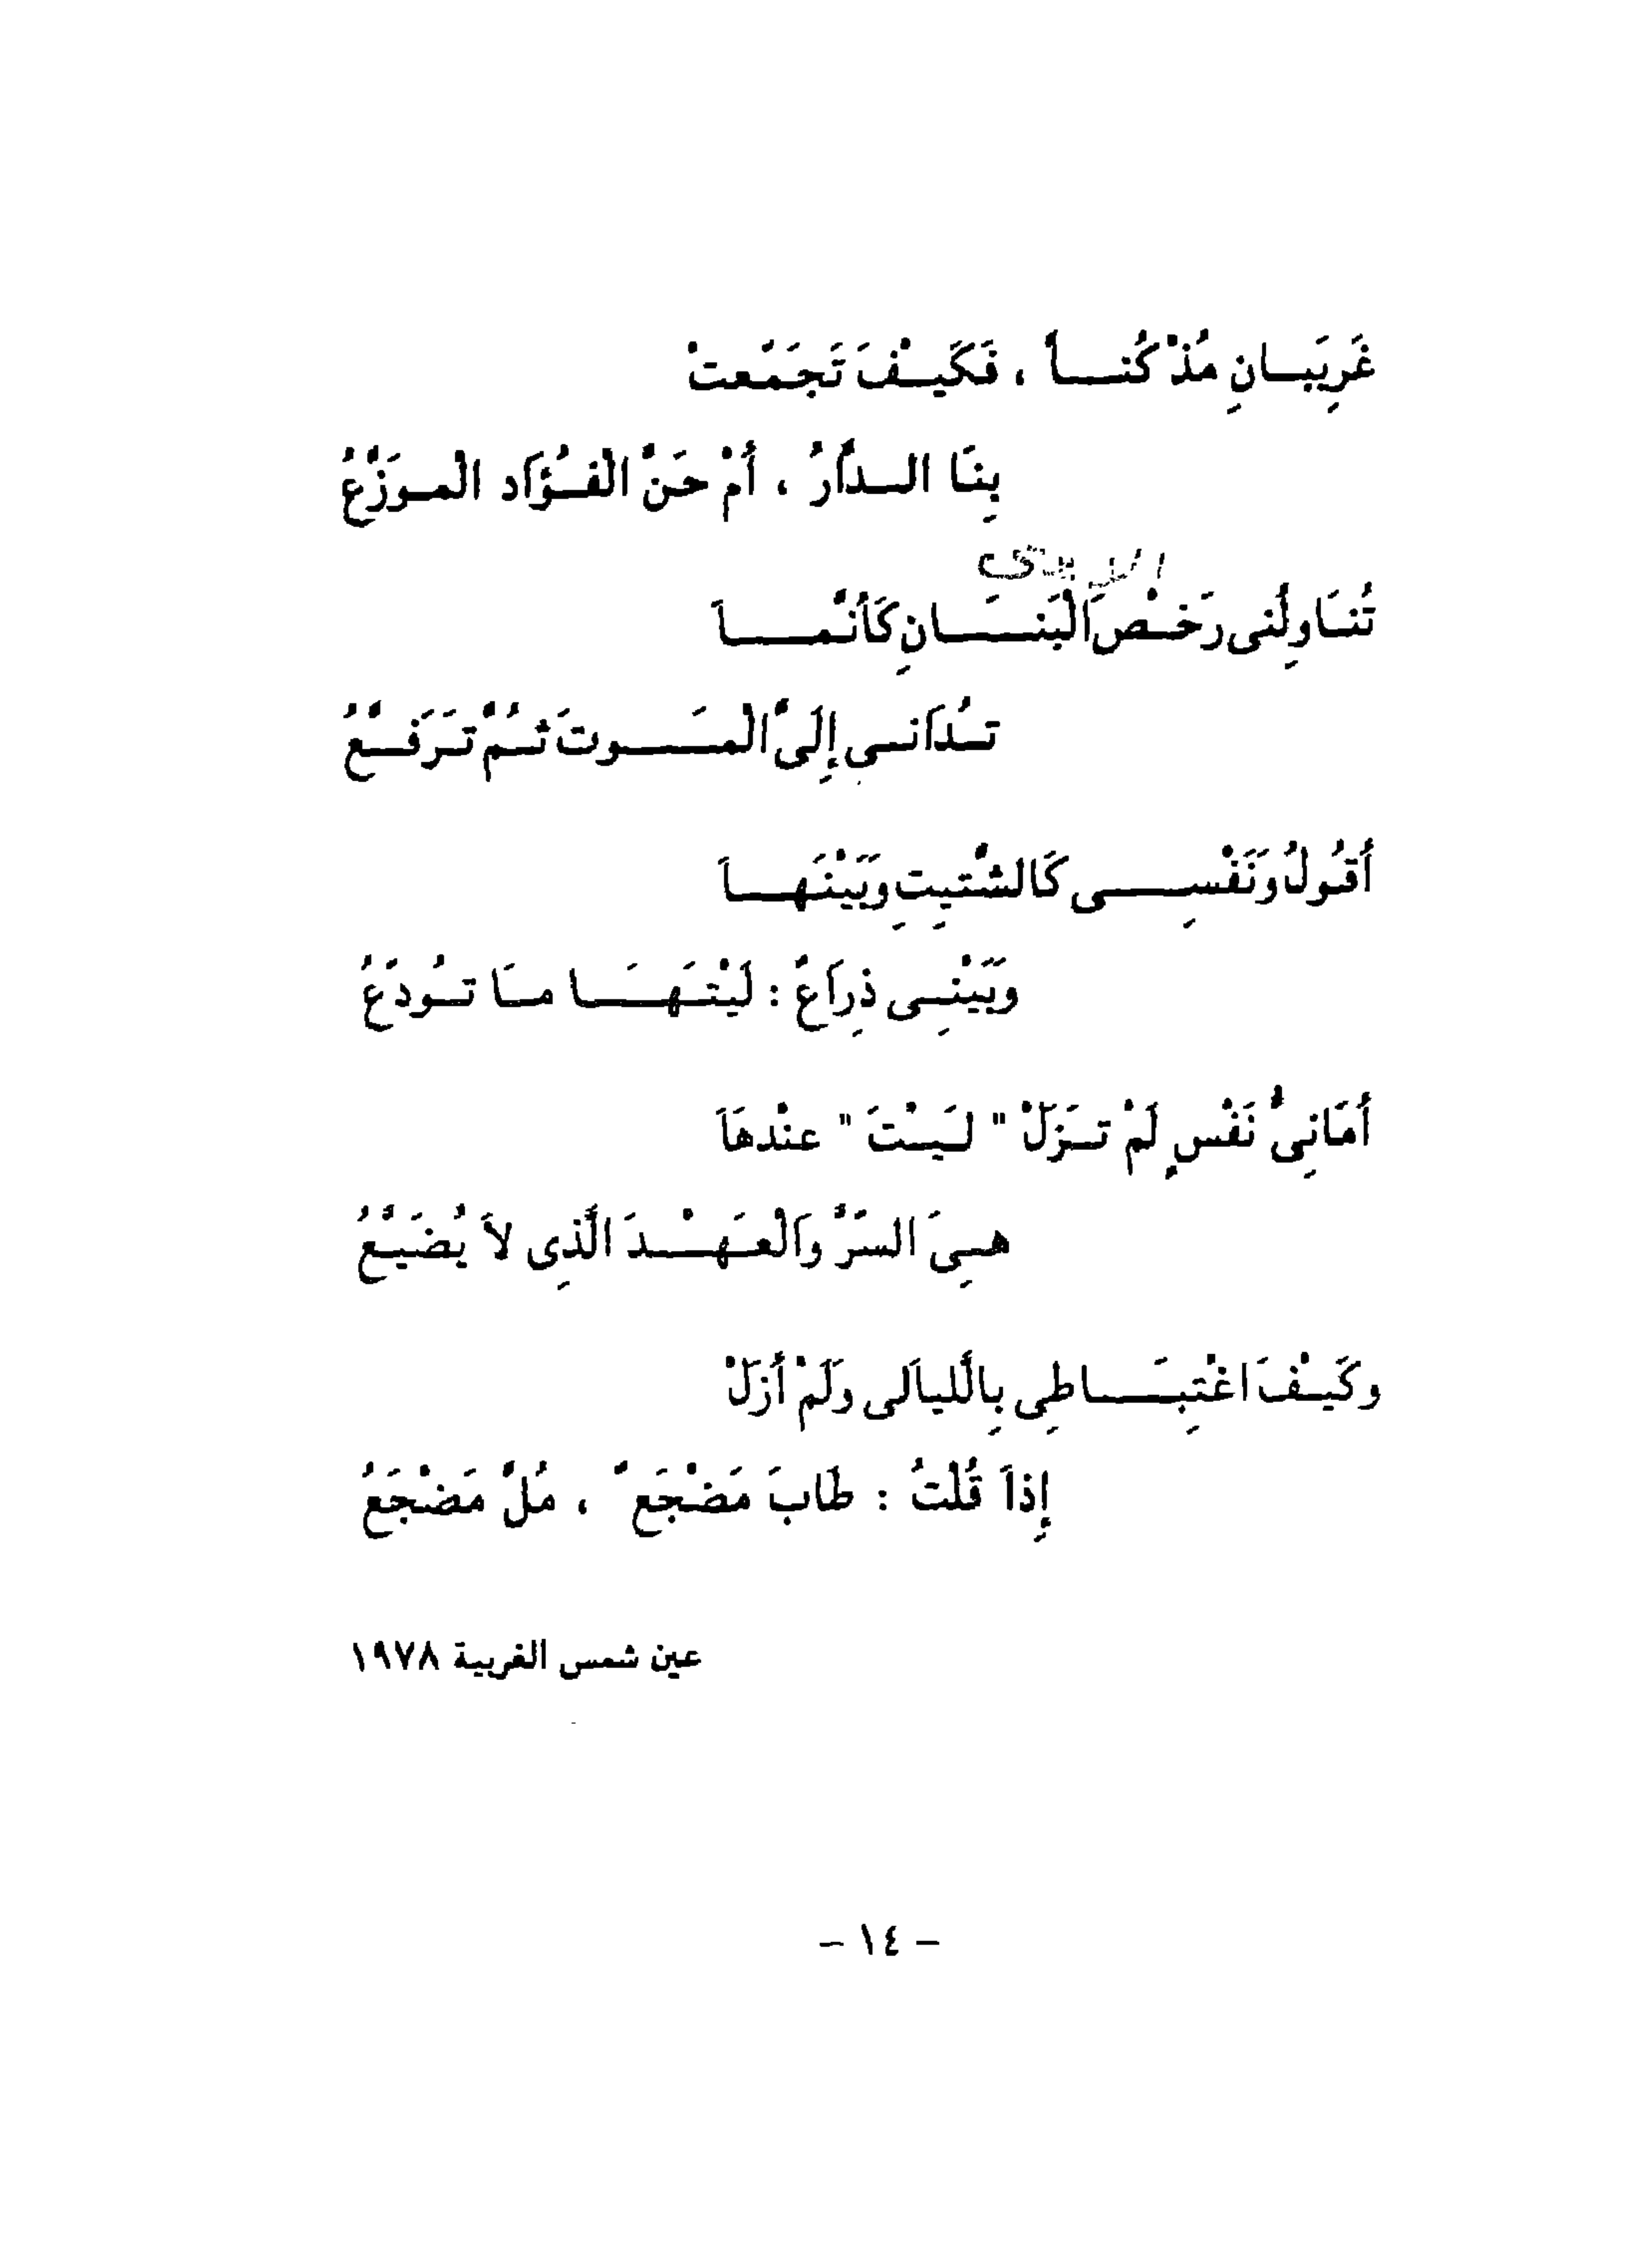 غَرِيَبانِ مُذْ كُنَّا ، فَكَيْفَ تَجَمَّعتْ
بِنَا الدَّارُ ، أَمْ حَنَّ الْفُؤَاد الْموَزَّعُ
تُنَاوِلُنى رَخْصَ الْبَنَانِ كَأنَّمَا
تُدَانى إِلىَّ الْمَوتَ ثُمَّ تَرَفَّعُ
أَقُولُ ونَفْسِى كَالشَّتيِتِ وبَيْنَهَا
وبَيْنِى ذِرَاعٌ : لَيْتَهَا مَا تُودَعُ
أمَانِىُّ نَفْسٍ لَمْ تَزَلْ " لَيْتَ " عنْدهَا
هىِيَ السِّرُّ والْعَهْدَ الَّذِى لاَ يُضَيَّعُ
وكَيْفَ اغْتِبَاطِى بِالَّلياَلى ولَمْ أَزَلْ
إِذاَ قُلْتُ : طَابَ مَضْجَعٌ ، مُلَّ مَضْجَعُ
عين شمس الغربية ١٩٧٨
- ١٤ -